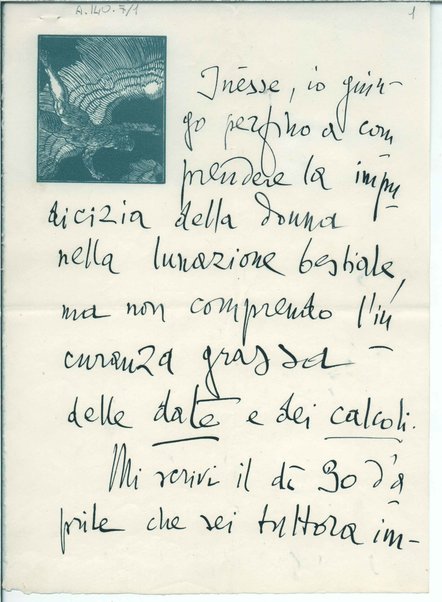 A.140.7/1
1
Inèsse, io giun-
go perfino a com
prendere la impu
dicizia della donna
nella lunazione bestiale,
ma non comprendo l'in
curanza grassa
delle date e dei calcoli.
Mi scrivi il dì 30 d'a
prile che sei tuttora im-